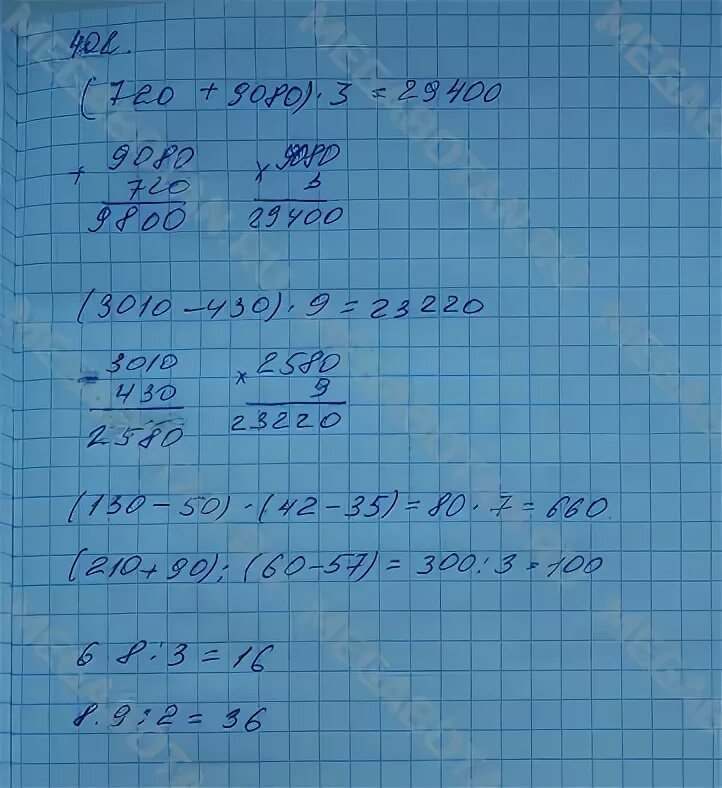 402.
(720 + 9080) · 3 = 29400
+ 9080
720
9800
× 9080
3
29400
(3010 - 430) · 9 = 23220
- 3010
430
2580
× 2580
9
23220
(130 - 50) · (42 - 35) = 80 · 7 = 660
(210 + 90) : (60 - 57) = 300 : 3 = 100
6 8 : 3 = 16
8 · 9 : 2 = 36